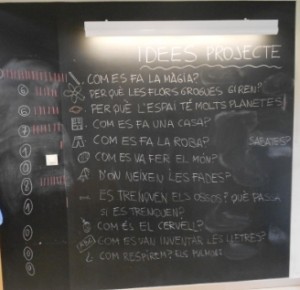 IDEES PROJECTE
COM ES FA LA MÀGIA?
6 PER QUÈ LES FLORS GROGUES GIREN?
6 PER QUÈ L'ESPAI TÉ MOLTS PLANETES
COM ES FA UNA CASA?
7 COM ES FA LA ROBA? SABATES?
COM ES VA FER EL MÓN?
D'ON NEIXEN LES FADES?
ES TRENQUEN ELS OSSOS? QUÈ PASSA
SI ES TRENQUEN?
COM ÉS EL CERVELL?
COM ES VAN INVENTAR LES LLETRES?
COM RESPIREM? ELS PULMONS